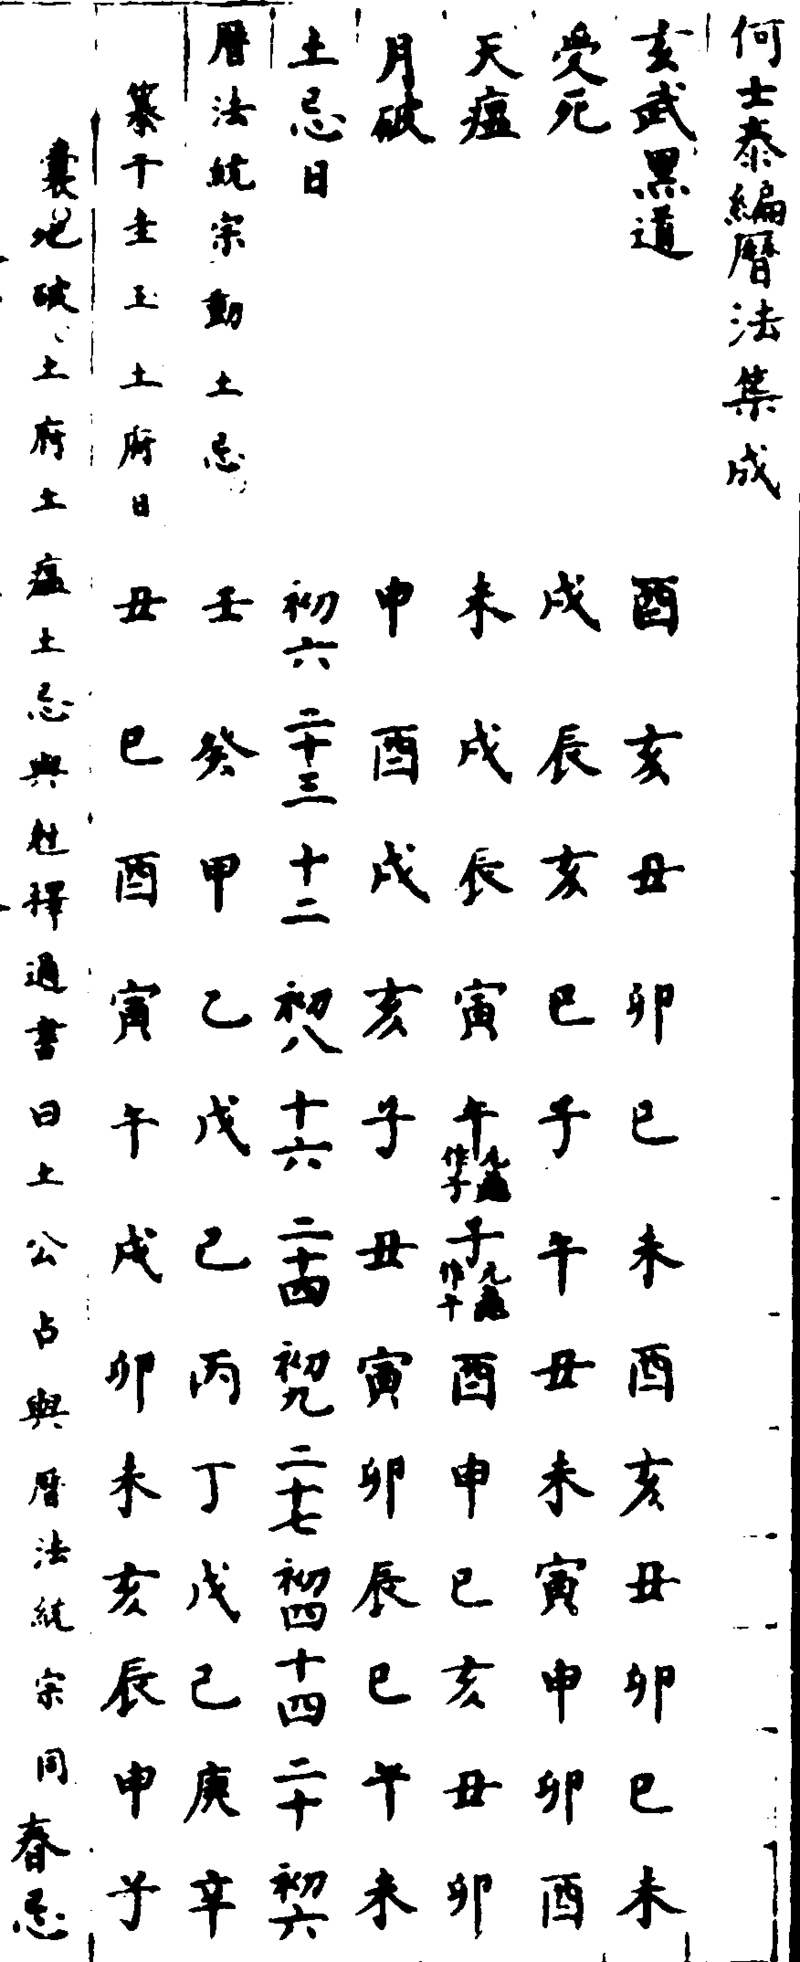 何士泰編曆法集成
玄武黑道 酉亥丑卯巳未酉亥丑卯巳未
受死 戌辰亥巳子午丑未寅申卯酉
天瘟 未戌辰寅午元龜作子子元龜作午酉申巳亥丑卯
月破 申酉戌亥子丑寅卯辰巳午未
土忌日 初六二十三十二初八十六二十四初九二十七初四十四二十初六
曆法統宗動土忌 壬癸甲乙戊己丙丁戊己庚辛
纂干圭玉土府日 丑巳酉寅午戌卯未亥辰申子
囊地破土府土瘟土忌與杜擇通書曰土公占與曆法統宗同春忌